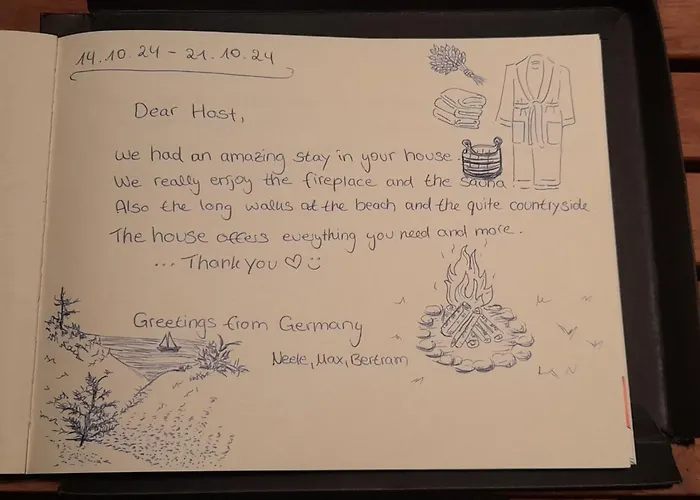 14.10.24 - 21.10.24
Dear Host,
we had an amazing stay in your house.
We really enjoy the fireplace and the sauna.
Also the long walks at the beach and the quite countryside
The house offers everything you need and more.
... Thank you ♡ ☺
Greetings from Germany
Neele, Max, Bertram